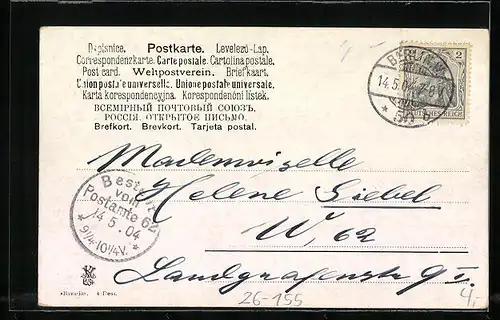 Dopisnice. Postkarte. Levelező-Lap.
Correspondenzkarte. Carte postale. Cartolina postale.
Post card. Weltpostverein. Briefkaart.
Union postale universelle. Unione postale universale.
Karta korespondencyjna. Korespondenční lístek.
ВСЕМІРНЫЙ ПОЧТОВЫЙ СОЮЗЪ.
РОССІЯ. ОТКРЫТОЕ ПИСЬМО.
Brefkort. Brevkort. Tarjeta postal.
BERLIN
14.5.04
2
DEUTSCHES REICH
Mademoiselle
Helene Siebel
W, 62
Landgrafenstr 9 I.
Bestellt
vom
Postamte 62
14 5.04
9¼-10¼V.
26-155
4,-